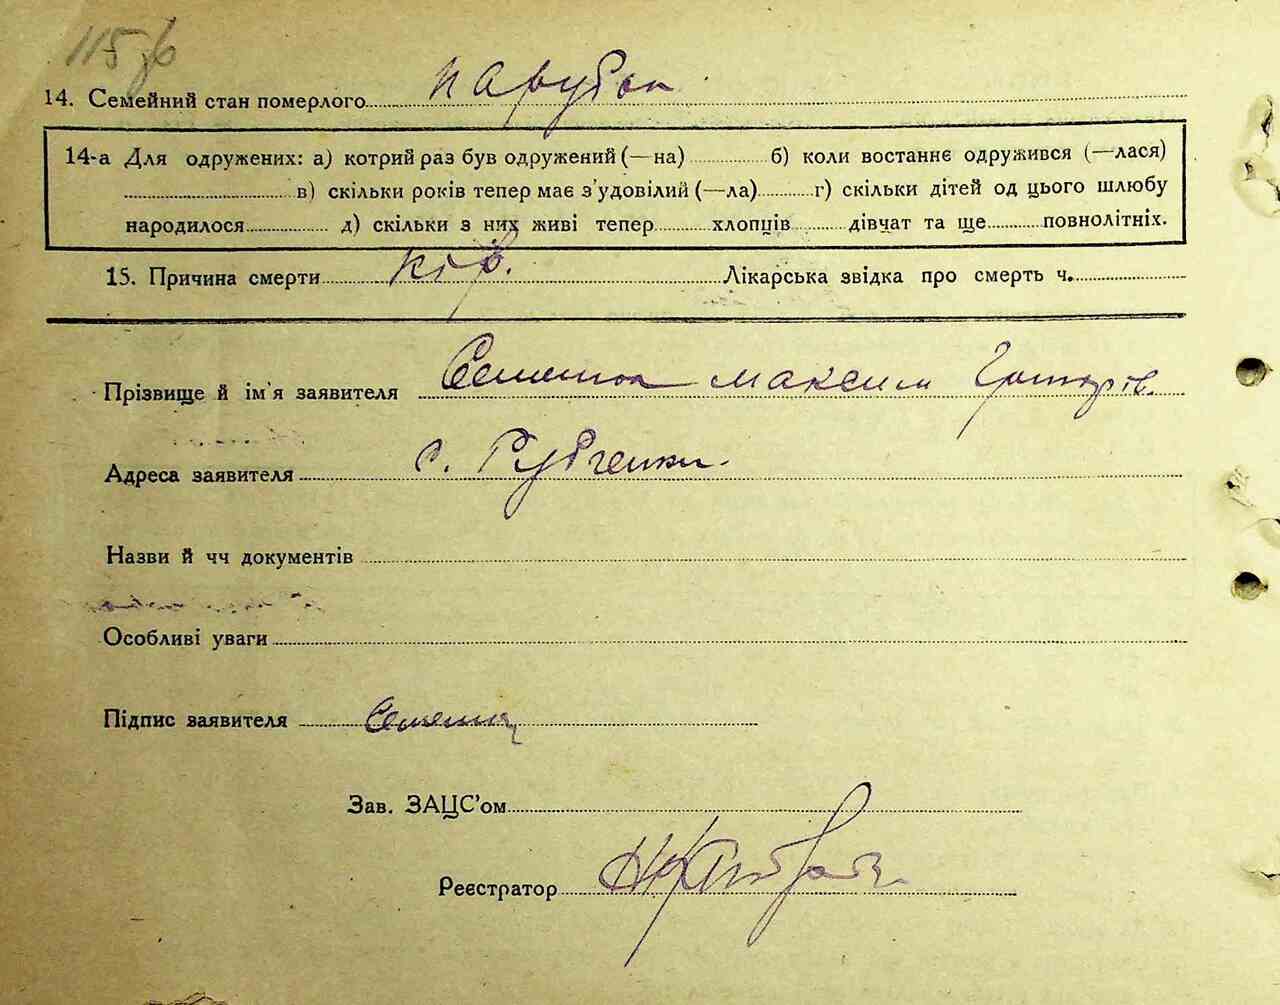 115зв
14. Семейний стан померлого парубок
14-а Для одружених: а) котрий раз був одружений (—на) б) коли востаннє одружився (—лася)
в) скільки років тепер має з'удовілий (—ла) г) скільки дітей од цього шлюбу
народилося д) скільки з них живі тепер хлопців дівчат та ще повнолітніх.
15. Причина смерти кір. Лікарська звідка про смерть ч.
Прізвище й ім'я заявителя Максим Григорів.
Адреса заявителя с. Рубченки.
Назви й чч документів
Особливі уваги
Підпис заявителя
Зав. ЗАЦС'ом
Реєстратор